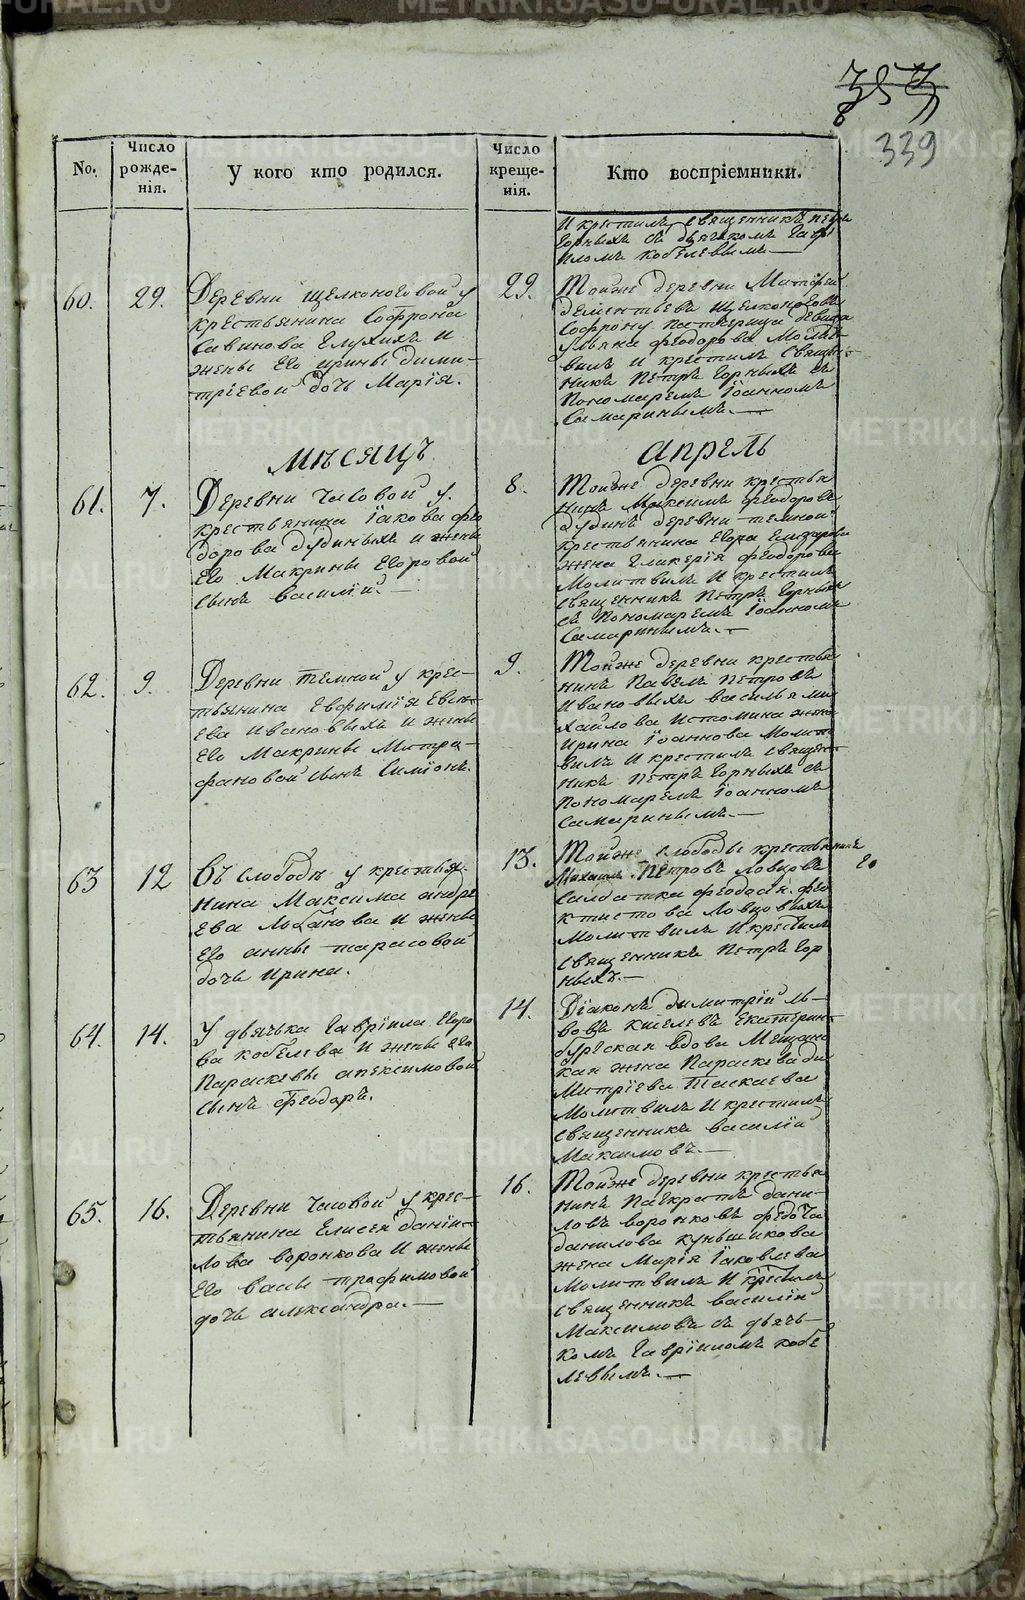 353
339
No.
Число рожде-нія.
У кого кто родился.
Число креще-нія.
Кто воспріемники.
и крестилъ священникъ Петръ
Горныхъ съ дьячкомъ Гаврі
иломъ Кобелевымъ
60.
29.
Деревни Щелконоговой у
крестьянина Софрона
Савинова Глухихъ и
жены его Ирины Дими-
тріевой дочь Марія.
29.
Тойже деревни
Дементьевъ Щелконоговъ
Софрону падчерица девица
Ульяна Феодорова молит-
вилъ и крестилъ Священ-
никъ Петръ Горныхъ съ
Пономаремъ Іоанномъ
Самаринымъ.
Мѣсяцъ
Апрель
61.
7.
Деревни Часовой у
крестьянина Іакова Фео
дорова Дудиныхъ и жены
его Макрины Егоровой
сынъ Василій.
8.
Тойже деревни крестья
нинъ Максимъ Феодоровъ
Дудинъ деревни Темной
крестьянина Егора Елизарова
жена Гликерія Феодорова
Молитвилъ и крестилъ
священникъ Петръ Горныхъ
съ Пономаремъ Іоанномъ
Самаринымъ.
62.
9.
Деревни Темной у крес-
тьянина Евфимія Евсе-
ева Ивановыхъ и жены
его Макрины Митро-
фановой сынъ Симіонъ.
9.
Тойже деревни крестья
нинъ Павелъ Петровъ
Ивановыхъ Василья Ми
хайлова Истомина жена
Ирина Іоаннова Молит
вилъ и крестилъ священ-
никъ Петръ Горныхъ съ
Пономаремъ Іоанномъ
Самаринымъ.
63
12
Въ слободѣ у крестья-
нина Максима Андре
ева и жены
его Анны Тарасовой
дочь Ирина.
13.
Тойже слободы крестьянинъ
Михаилъ Петровъ Ловцовъ
Солдатка Феодосія Фео
ктистова Ловцовыхъ
Молитвилъ и крестилъ
священникъ Петръ Гор
ныхъ.
64.
14.
У дьячька Гавріила Егоро
ва Кобелева и жены его
Параскевы Анексимовой
сынъ Феодоръ.
14.
Діаконъ Димитрій Ль-
вовъ Киселевъ Екатерин-
бургская вдова Мещанс
кая жена Параскева Ди
митріева
Молитвилъ и крестилъ
священникъ Василій
Максимовъ.
65.
16.
Деревни Часовой у крес-
тьянина Елисея Даніи-
лова Воронкова и жены
его Васы Трофимовой
дочь Александра.
16.
Тойже деревни крестья
нинъ Панкратъ Дани-
ловъ Воронковъ Федота
Данилова Кунщикова
жена Марія Іаковлева
Молитвилъ и крестилъ
священникъ Василій
Максимовъ съ дьячь-
комъ Гавріиломъ Кобе
левымъ.